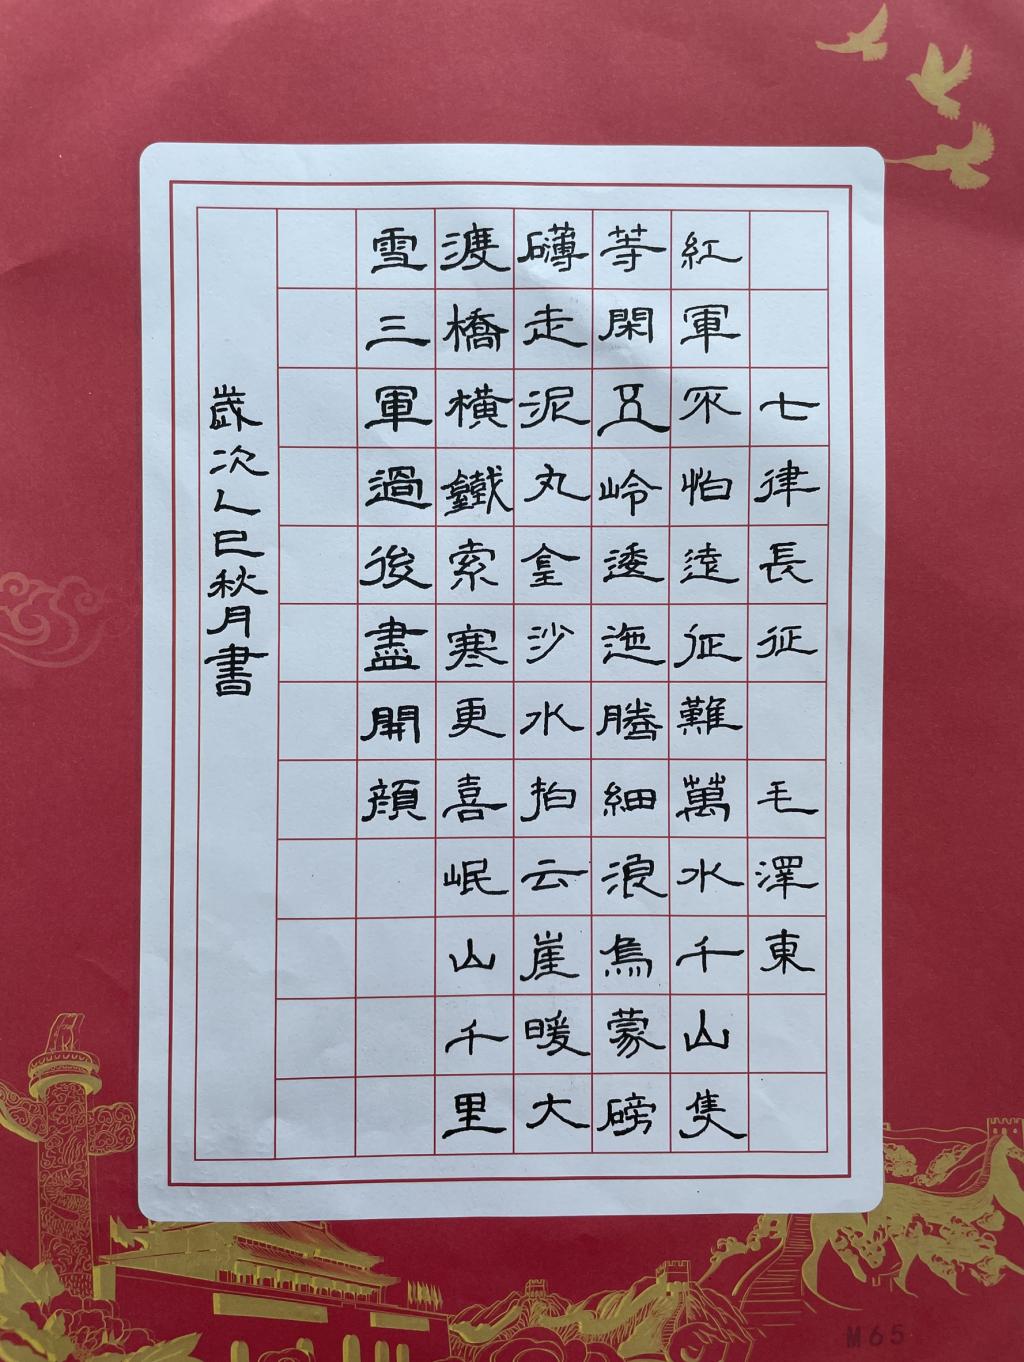 七律長征 毛澤東
紅軍不怕遠征難萬水千山隻
等閑五岭逶迤騰細浪烏蒙磅
礴走泥丸金沙水拍云崖暖大
渡橋橫鐵索寒更喜岷山千里
雪三軍過後盡開顔
歲次乙巳秋月書
M65